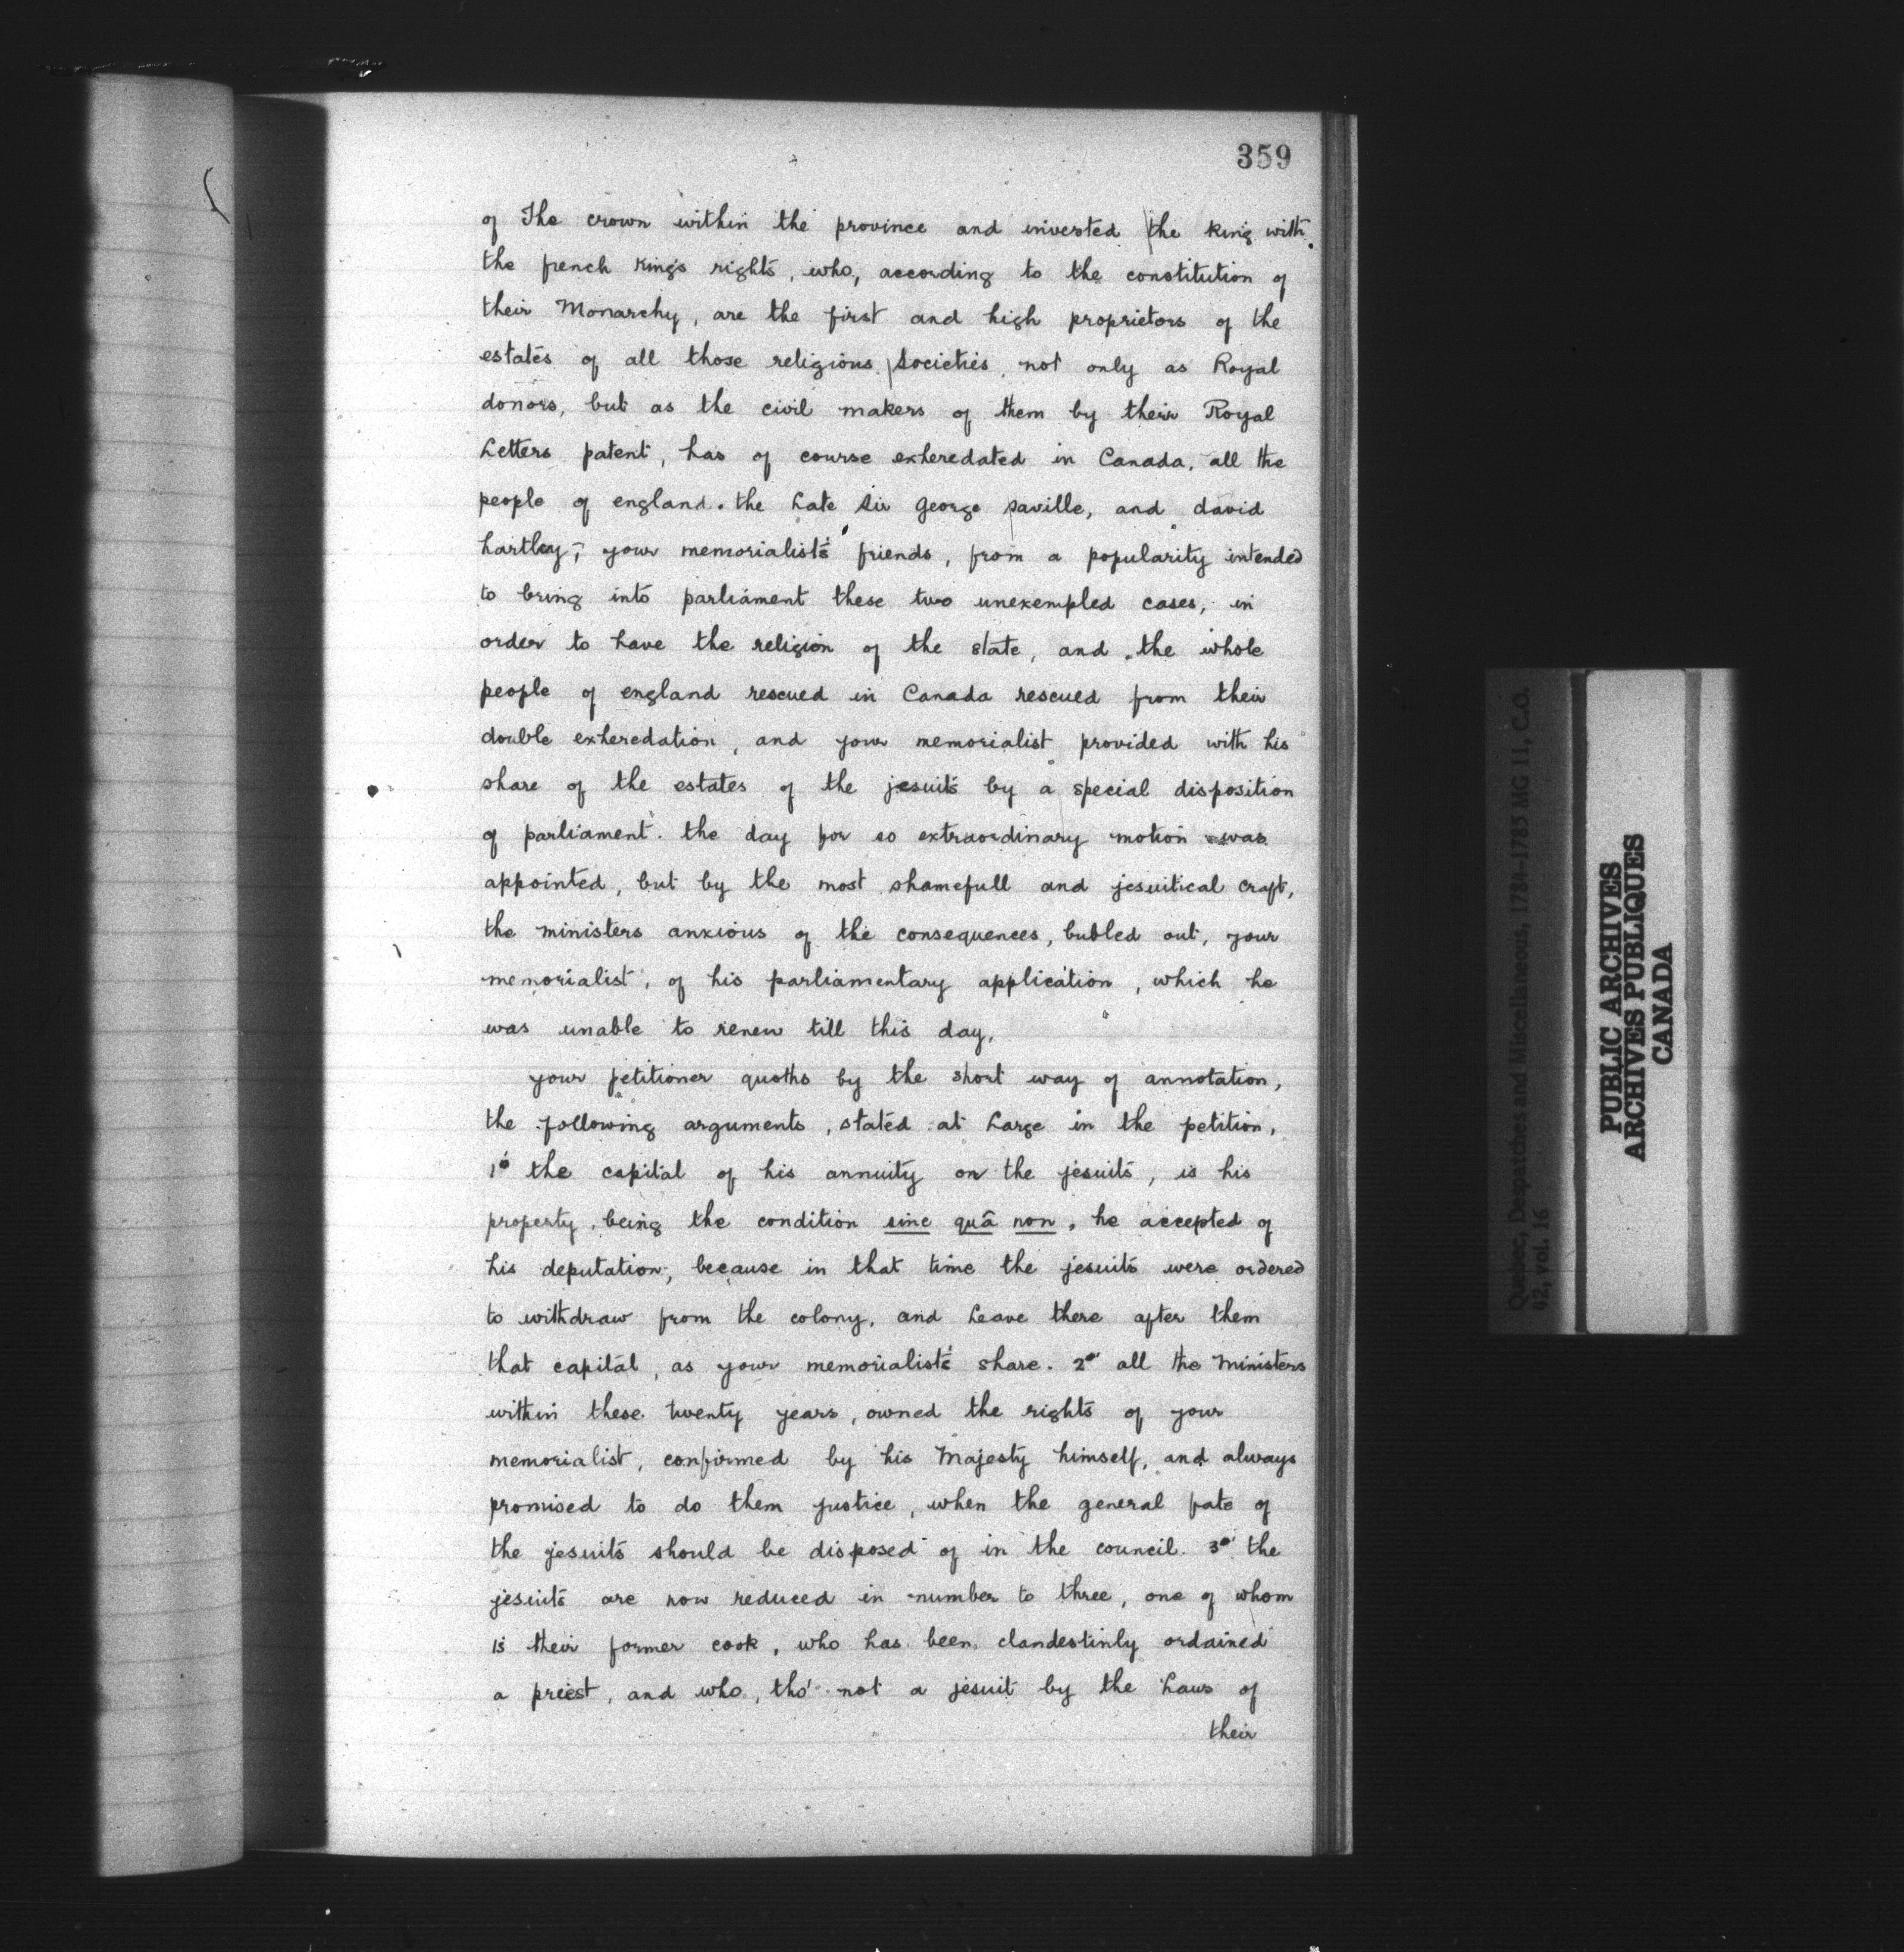 359
of The crown within the province and invested the King with
the french Kings rights, who, according to the constitution of
their Monarchy, are the first and high proprietors of the
estates of all those religious Societies, not only as Royal
donors, but as the civil makers of them by their Royal
Letters patent, has of course exheredated in Canada, all the
people of england. the Late Sir George Saville, and david
hartley, your memorialist's friends, from a popularity intended
to bring into parliament these two unexempled cases, in
order to have the religion of the state, and the whole
people of england rescued in Canada rescued from their
double exheredation, and your memorialist provided with his
share of the estates of the jesuits by a special disposition
of parliament. the day for so extraordinary motion was
appointed, but by the most shamefull and jesuitical craft,
the ministers anxious of the consequences, bubled out, your
memorialist, of his parliamentary application, which he
was unable to renew till this day,
your petitioner quoths by the short way of annotation,
the following arguments, stated at Large in the petition,
1o the capital of his annuity on the jesuits, is his
property, being the condition sine quâ non, he accepted of
his deputation, because in that time the jesuits were ordered
to withdraw from the colony, and Leave there after them
that capital, as your memorialist's share. 2o all the Ministers
within these twenty years, owned the rights of your
memorialist, confirmed by his Majesty himself, and always
promised to do them justice, when the general fate of
the jesuits should be disposed of in the council. 3o the
jesuits are now reduced in number to three, one of whom
is their former cook, who has been clandestinly ordained
a preist, and who, tho' not a jesuit by the Laws of
their
Quebec, Despatches and Miscellaneous, 1784-1785 MG 11, C.O.
42, vol. 16
PUBLIC ARCHIVES
ARCHIVES PUBLIQUES
CANADA